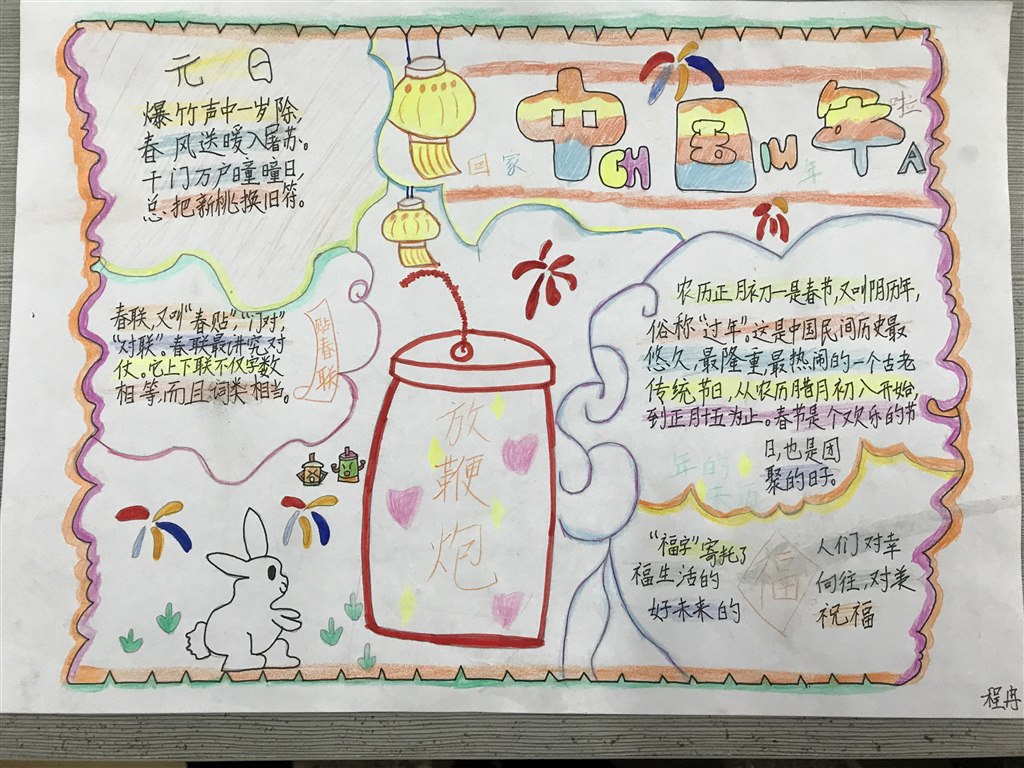 元日
爆竹声中一岁除,
春风送暖入屠苏。
千门万户曈曈日,
总把新桃换旧符。
中国年
CHINA
啦
回家
年
春联,又叫"春贴","门对",
"对联"。春联最讲究对
仗。它上下联不仅字数
相等,而且词类相当。
贴春联
放鞭炮
农历正月初一是春节,又叫阴历年,
俗称"过年"。这是中国民间历史最
悠久,最隆重,最热闹的一个古老
传统节日,从农历腊月初八开始,
到正月十五为止。春节是个欢乐的节
日,也是团
聚的日子。
年的
"福字"寄托了人们对幸
福生活的向往,对美
好未来的祝福
福
程冉